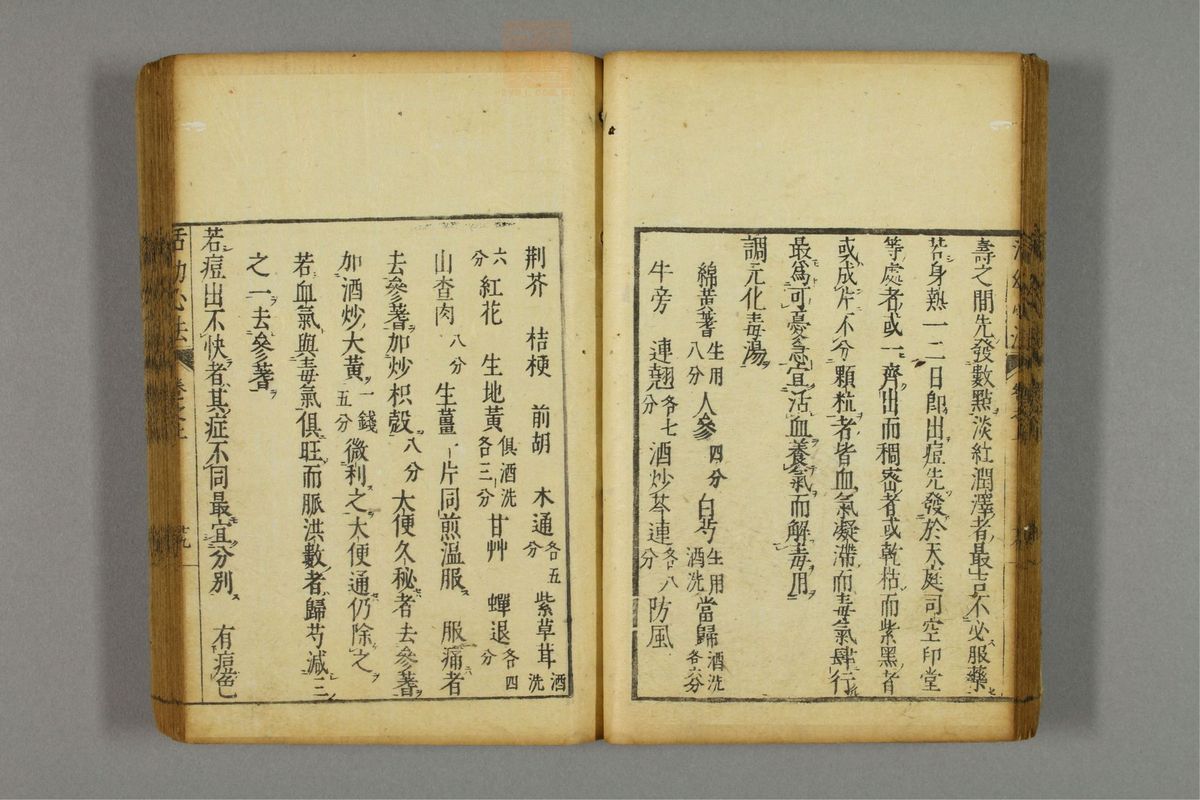 壽之間先發數點淡紅潤澤者最吉不必服藥
若身熱一二日卽出痘先發於天庭司空印堂
等處者或一齊出而稠密者或乾枯而紫黑者
或成片不分顆粒者皆血氣凝滯而毒氣肆行
最爲可憂急宜活血養氣而解毒用
調元化毒湯
綿黃蓍生用八分 人參四分 白芍生用酒洗 當歸酒洗各六分
牛旁 連翹各七分 酒炒芩連各八分 防風
荆芥 桔梗 前胡 木通各五分 紫草茸酒洗
六分 紅花 生地黃俱酒洗各三分 甘艸 蟬退各四分
山查肉八分 生薑一片同煎溫服 服痛者
去參蓍加炒枳殼八分 大便久秘者去參蓍
加酒炒大黃一錢五分 微利之大便通仍除之
若血氣與毒氣俱旺而脈洪數者歸芍減三
之一去參蓍
若痘出不快者其症不同最宜分別 有痘色
活幼心法